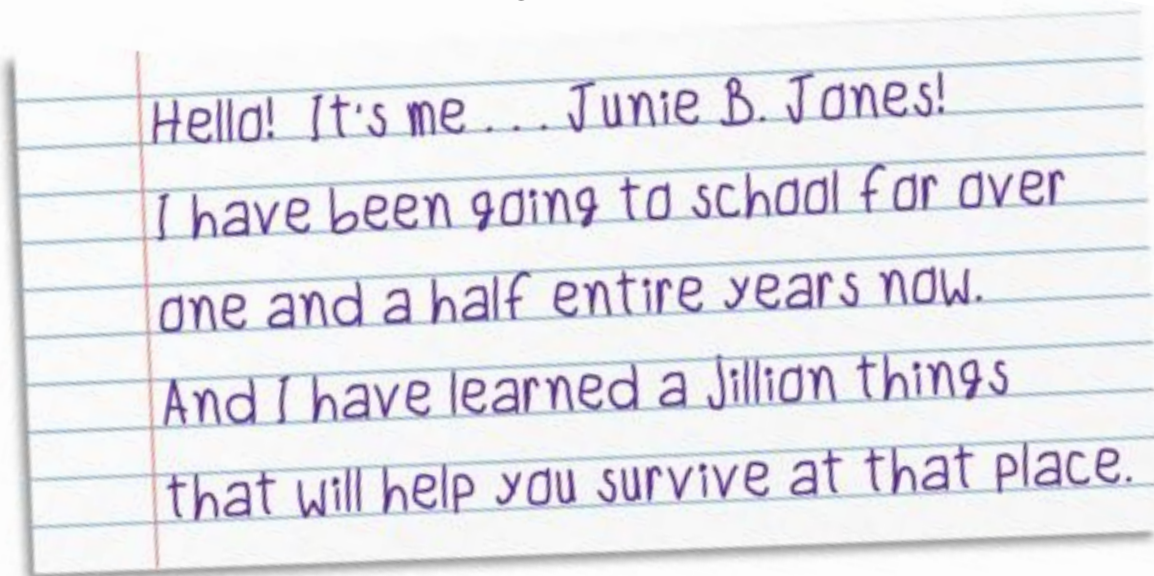 Hello! It's me . . . Junie B. Jones!
I have been going to school for over
one and a half entire years now.
And I have learned a jillion things
that will help you survive at that place.